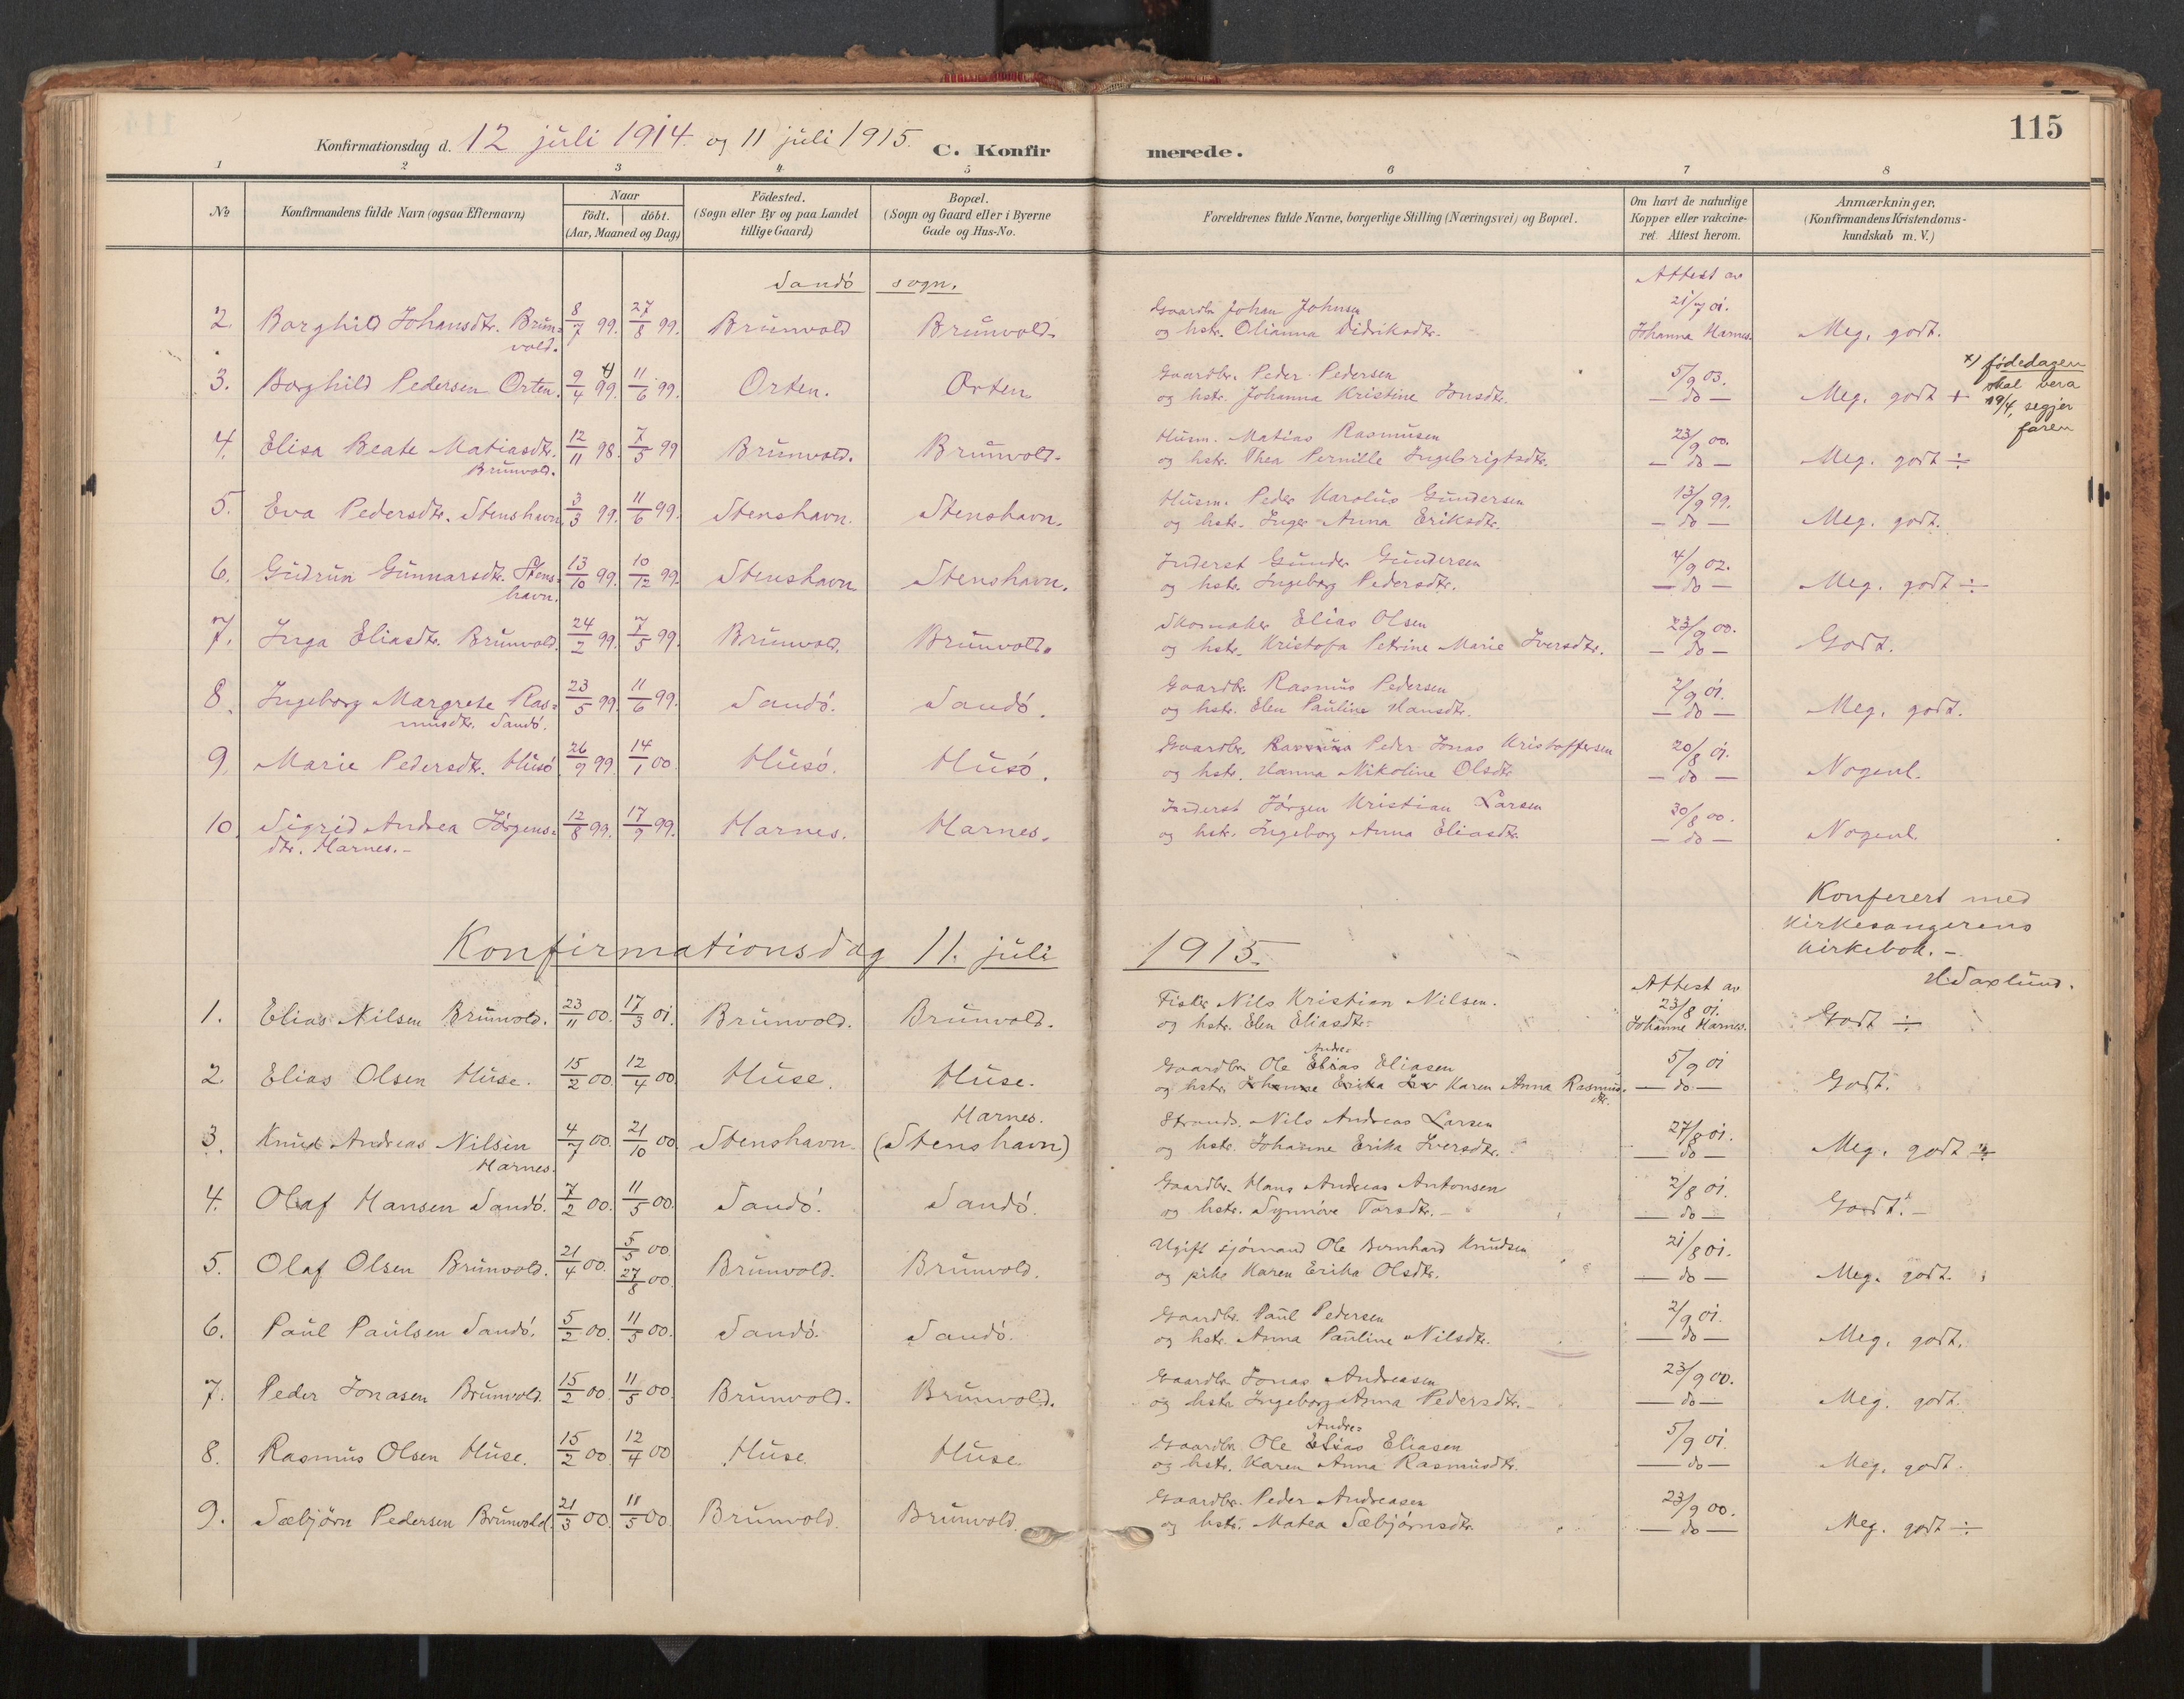 115
Konfirmationsdag d. 12 juli 1914 og 11 juli 1915. C. Konfirmerede.
1 2 3 4 5 6 7 8
No
Konfirmandens fulde Navn (ogsaa Efternavn)
Naar
födt. | döbt.
(Aar, Maaned og Dag)
Födested.
(Sogn eller By og paa Landet
tillige Gaard)
Bopæl.
(Sogn og Gaard eller i Byerne
Gade og Hus-No.
Forældrenes fulde Navne, borgerlige Stilling (Næringsvei) og Bopæl.
Om havt de naturlige
Kopper eller vakcine-
ret. Attest herom.
Anmærkninger.
(Konfirmandens Kristendoms-
kundskab m. V.)
Sandö sogn.
Attest av
2. Borghild Johansdtr. Brun- 8/7 99. 27/8 99. Brunvold Brunvold. Gaardbr. Johan Johnsen 21/7 01.
vold. og hstr. Olianna Didriksdtr. Johanna Harnes. Meg. godt.
3. Borghild Pedersen Orten. 9/4 99. x) 11/6 99. Orten. Orten. Gaardbr. Peder Pedersen 5/9 03.
og hstr. Johanna Kristine Jonsdtr. — do — Meg. godt +
x) fødedagen
skal vera
19/4, segjer
faren
4. Elisa Beate Matiasdtr. 12/11 98. 7/5 99 Brunvold. Brunvold. Husm. Matias Rasmusen 23/9 00.
Brunvold. og hstr. Thea Pernille Ingebrigtsdtr. — do — Meg. godt ÷
5. Eva Pedersdtr. Stenshavn. 3/3 99. 11/6 99. Stenshavn. Stenshavn. Husm. Peder Karolus Gundersen 13/9 99.
og hstr. Inger Anna Eriksdtr. — do — Meg. godt.
6. Gudrun Gunnarsdtr. Stens- 13/10 99. 10/12 99. Stenshavn. Stenshavn. Inderst Gunder Gundersen 4/9 02.
havn. og hstr. Ingeborg Pedersdtr. — do — Meg. godt ÷
7. Inga Eliasdtr. Brunvold. 24/2 99. 7/5 99. Brunvold. Brunvold. Skomaker Elias Olsen 23/9 00.
og hstr. Kristofa Petrine Marie Iversdtr. — do — Godt.
8. Ingeborg Margrete Ras- 23/5 99. 11/6 99. Sandö. Sandö. Gaardbr. Rasmus Pedersen 7/9 01.
musdtr. Sandö. og hstr. Elen Pauline Hansdtr. — do — Meg. godt.
9. Marie Pedersdtr. Husö 26/9 99. 14/1 00. Husö. Husö. Gaardbr. Rasmus Peder Jonas Kristoffersen 20/8 01.
og hstr. Hanna Nikoline Olsdtr. — do — Nogenl.
10. Sigrid Andrea Jörgens- 12/8 99. 17/9 99. Harnes. Harnes. Inderst Jörgen Kristian Larsen 30/8 00.
dtr. Harnes.- og hstr. Ingeborg Anna Eliasdtr. — do — Nogenl.
Konferert med
kirkesangerens
kirkebok. -
H. Saxlund.
Konfirmationsdag 11. juli 1915.
Attest av
1. Elias Nilsen Brunvold. 23/11 00. 17/3 01. Brunvold. Brunvold. Fisker Nils Kristian Nilsen. 23/8 01.
og hstr. Elen Eliasdtr. Johanne Harnes. Godt ÷
2. Elias Olsen Huse. 15/2 00. 12/4 00 Huse. Huse. Gaardbr. Ole Elias Andre- Eliasen 5/9 01
og hstr. Johanne Erika Iv Karen Anna Rasmus- — do — Godt.
dtr.
3. Knud Andreas Nilsin 4/7 00. 21/10 00. Stenshavn. Harnes. Strands. Nils Andreas Larsen 27/8 01.
Harnes. (Stenshavn) og hstr. Johanne Erika Iversdtr. — do — Meg. godt ÷
4. Olaf Hansen Sandö. 7/2 00. 11/5 00. Sandö. Sandö. Gaardbr. Hans Andreas Antonsen 2/8 01.
og hstr. Synnöve Torsdtr. — do — Godt. -
5. Olaf Olsen Brunvold. 21/4 00. 5/5 00. 27/8 00. Brunvold. Brunvold. Ugift sjömand Ole Bernhard Knudsen 21/8 01.
og pike Karen Erika Olsdtr. — do — Meg. godt.
6. Paul Paulsen Sandö. 5/2 00. 11/5 00. Sandö. Sandö. Gaardbr. Paul Pedersen 2/9 01.
og hstr. Anna Pauline Nilsdtr. — do — Meg. godt.
7. Peder Jonasen Brunvold. 15/2 00 11/5 00. Brunvold. Brunvold. Gaardbr. Jonas Andreasen 23/9 00.
og hstr. Ingeborg Anna Pedersdtr. — do — Meg. godt.
8. Rasmus Olsen Huse. 15/2 00 12/4 00 Huse. Huse. Gaardbr. Ole Elias Andre- Eliasen 5/9 01.
og hstr. Karen Anna Rasmusdtr. — do — Meg. godt.
9. Sæbjörn Pedersen Brunvold. 21/3 00. 11/5 00. Brunvold. Brunvold. Gaardbr. Peder Andreasen 23/9 00.
og hstr. Matea Sæbjörnsdtr. — do — Meg. godt ÷